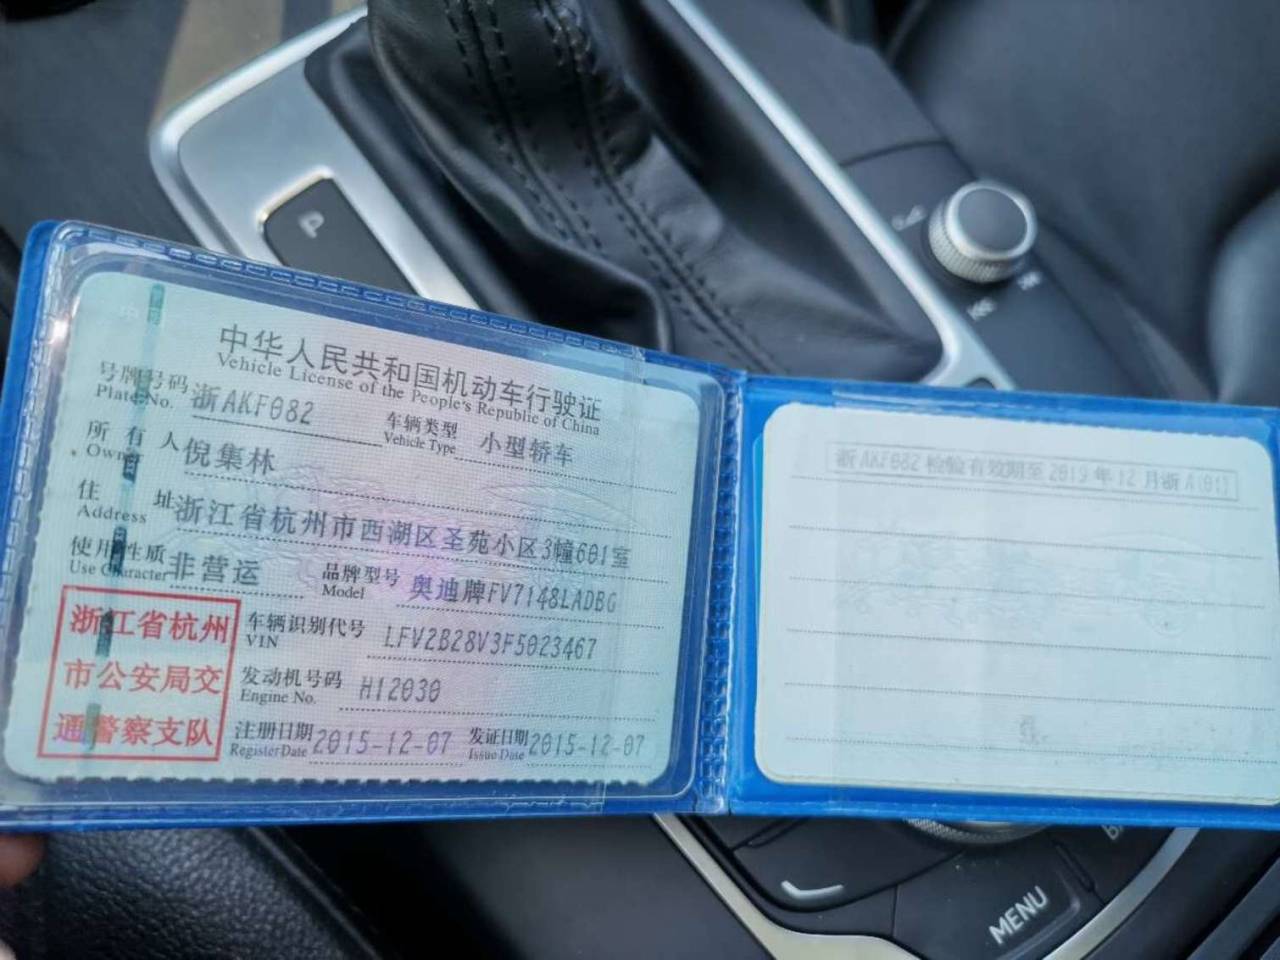 中华人民共和国机动车行驶证
Vehicle License of the People's Republic of China
号牌号码 浙AKF082 车辆类型 小型轿车
Plate No. Vehicle Type
所有人 倪集林
Owner
住址 浙江省杭州市西湖区圣苑小区3幢601室
Address
使用性质 非营运 品牌型号 奥迪牌FV7148LADBG
Use Character Model
浙江省杭州
市公安局交
通警察支队
车辆识别代号 LFV2B28V3F5023467
VIN
发动机号码 H12030
Engine No.
注册日期 2015-12-07 发证日期 2015-12-07
Register Date Issue Date
浙AKF082 检验有效期至 2019年12月浙A(01)
P
MENU